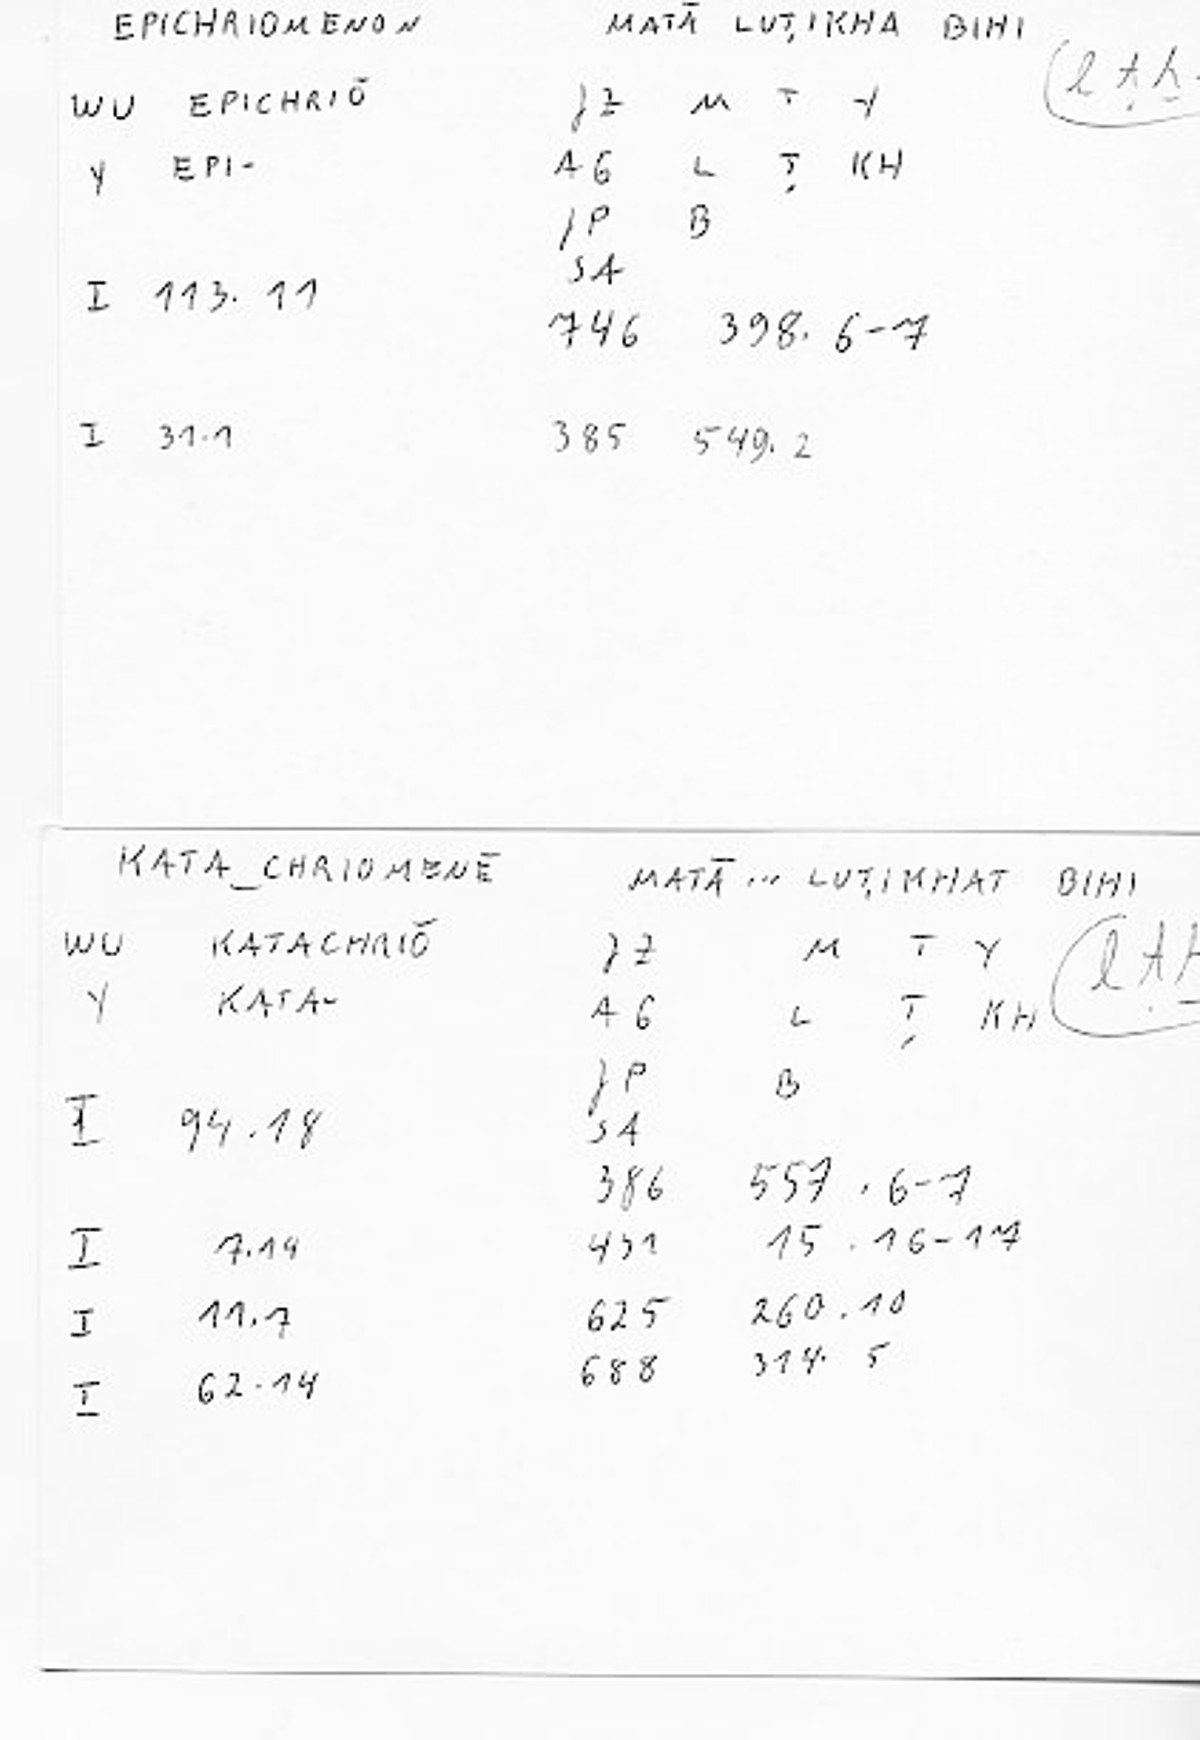 EPICHRIOMENON MATĀ LUṬIKHA BIHI
WU EPICHRIŌ JZ M T Y (l ṭ ḫ
Y EPI- AG L Ṭ KH
JP B
SA
I 113.11
746 398.6-7
I 31.1 385 549.2
KATA_CHRIOMENĒ MATĀ... LUṬIKHAT BIHI
WU KATACHRIŌ JZ M T Y (l ṭ ḫ
Y KATA- AG L Ṭ KH
JP B
I 94.18 SA
386 557.6-7
I 7.14 431 15.16-17
I 11.7 625 260.10
I 62.14 688 314.5